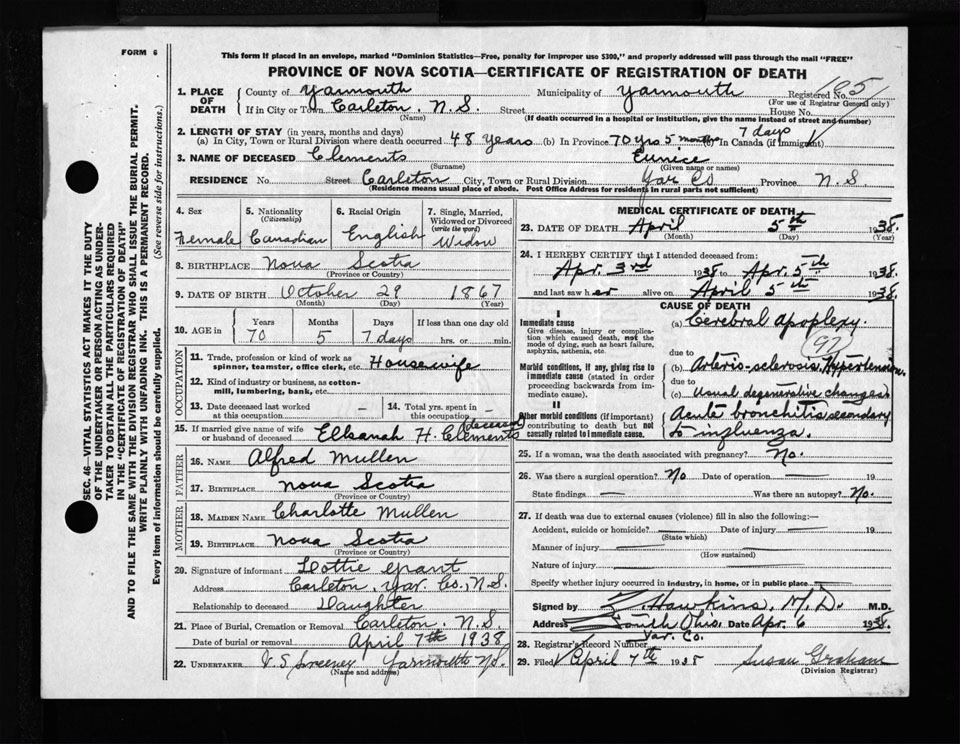 FORM 6
This form if placed in an envelope, marked "Dominion Statistics—Free, penalty for improper use $300," and properly addressed will pass through the mail "FREE"
PROVINCE OF NOVA SCOTIA—CERTIFICATE OF REGISTRATION OF DEATH
1. PLACE OF DEATH County of Yarmouth Municipality of Yarmouth Registered No. 105
(For use of Registrar General only)
If in City or Town Carleton, N.S. Street House No.
(Name) (If death occurred in a hospital or institution, give the name instead of street and number)
2. LENGTH OF STAY (in years, months and days)
(a) In City, Town or Rural Division where death occurred 48 Years (b) In Province 70 yrs 5 months 7 days (c) In Canada (if immigrant)
3. NAME OF DECEASED Clements Eunice
(Surname) (Given name or names)
RESIDENCE No. Street Carleton City, Town or Rural Division Yar Co Province N.S.
(Residence means usual place of abode. Post Office Address for residents in rural parts not sufficient)
4. Sex Female
5. Nationality (Citizenship) Canadian
6. Racial Origin English
7. Single, Married, Widowed or Divorced (write the word) Widow
8. BIRTHPLACE Nova Scotia
(Province or Country)
9. DATE OF BIRTH October 29 1867
(Month) (Day) (Year)
10. AGE in Years 70 Months 5 Days 7 days If less than one day old hrs. or min.
OCCUPATION
11. Trade, profession or kind of work as spinner, teamster, office clerk, etc. Housewife
12. Kind of industry or business, as cotton-mill, lumbering, bank, etc.
13. Date deceased last worked at this occupation – 14. Total yrs. spent in this occupation –
15. If married give name of wife or husband of deceased Elkanah H. Clements deceased
FATHER
16. NAME Alfred Mullen
17. BIRTHPLACE Nova Scotia
(Province or Country)
MOTHER
18. MAIDEN NAME Charlotte Mullen
19. BIRTHPLACE Nova Scotia
(Province or Country)
20. Signature of informant Lottie Grant
Address Carleton, Yar. Co., N.S.
Relationship to deceased Daughter
21. Place of Burial, Cremation or Removal Carleton, N.S.
Date of burial or removal April 7th 1938
22. UNDERTAKER V S Sweeney Yarmouth NS.
(Name and address)
MEDICAL CERTIFICATE OF DEATH
23. DATE OF DEATH April 5th 1938.
(Month) (Day) (Year)
24. I HEREBY CERTIFY that I attended deceased from:
Apr. 3rd 1938 to Apr. 5th 1938.
and last saw her alive on April 5th 1938.
CAUSE OF DEATH
I
Immediate cause
Give disease, injury or complication which caused death, not the mode of dying, such as heart failure, asphyxia, asthenia, etc.
(a) Cerebral Apoplexy.
(97)
due to
Morbid conditions, if any, giving rise to immediate cause (stated in order proceeding backwards from immediate cause).
(b) Arterio-sclerosis, Hypertension.
due to
(c) Usual degenerative changes
II
Other morbid conditions (if important) contributing to death but not causally related to immediate cause.
Acute bronchitis, secondary
to influenza.
25. If a woman, was the death associated with pregnancy? No.
26. Was there a surgical operation? No Date of operation — 19
State findings — Was there an autopsy? No.
27. If death was due to external causes (violence) fill in also the following:—
Accident, suicide or homicide? Date of injury 19
(State which)
Manner of injury
(How sustained)
Nature of injury
Specify whether injury occurred in industry, in home, or in public place
Signed by Hawkins, M.D. M.D.
Address South Ohio. Date Apr. 6 1938.
Yar. Co.
28. Registrar's Record Number
29. Filed April 7th 1938 Susan Graham
(Division Registrar)
SEC. 46—VITAL STATISTICS ACT MAKES IT THE DUTY
OF THE UNDERTAKER OR PERSON ACTING AS UNDER-
TAKER TO OBTAIN ALL THE PARTICULARS REQUIRED
IN THE "CERTIFICATE OF REGISTRATION OF DEATH"
AND TO FILE THE SAME WITH THE DIVISION REGISTRAR WHO SHALL ISSUE THE BURIAL PERMIT.
WRITE PLAINLY WITH UNFADING INK. THIS IS A PERMANENT RECORD.
Every item of information should be carefully supplied. (See reverse side for instructions.)